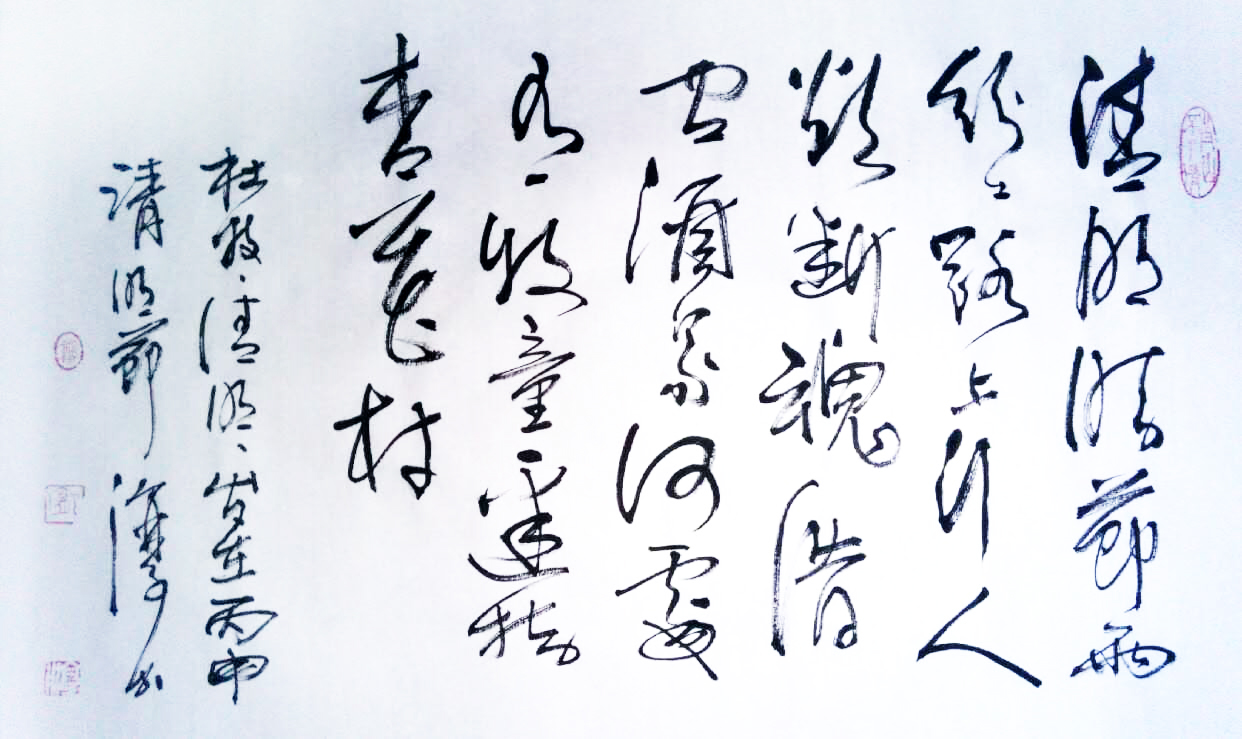 清明時節雨
紛紛路上行人
欲断魂借
问酒家何處
有牧童遥指
杏花村
杜牧、清明、岁在丙申
清明節書